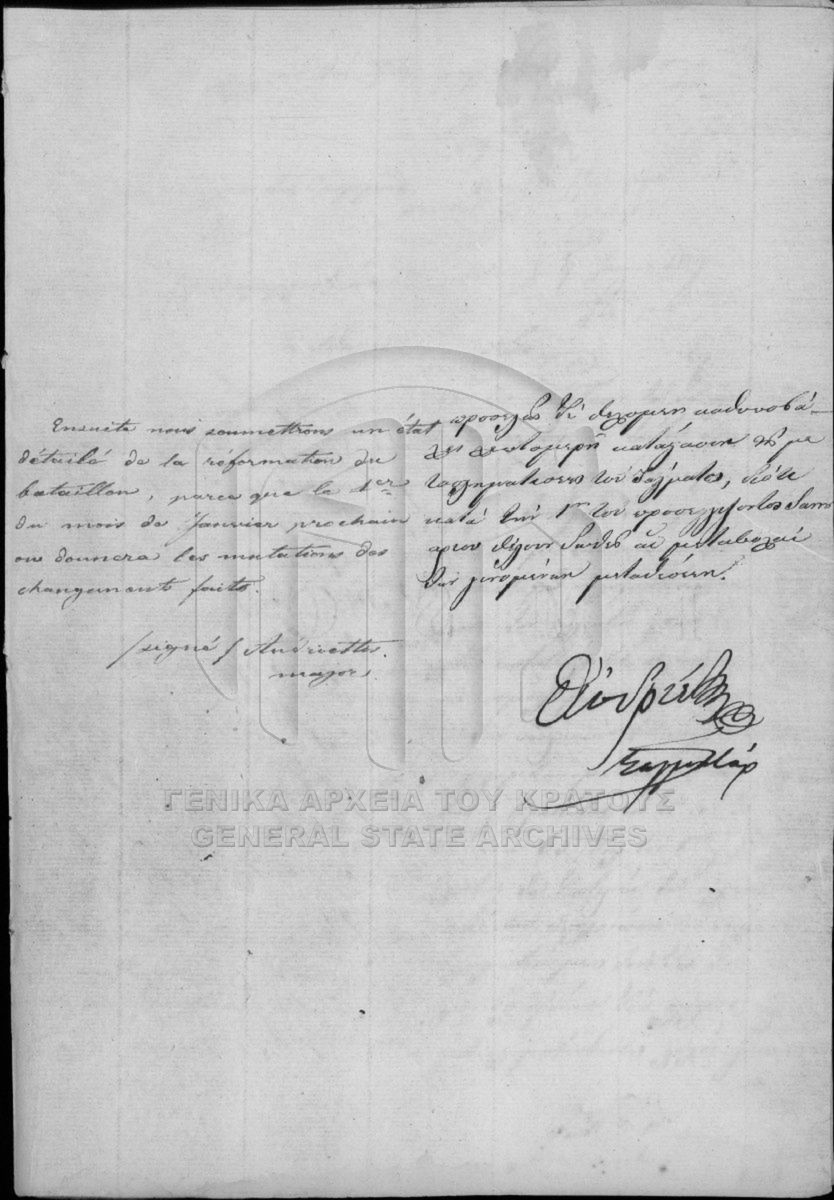 Ensuite nous soumettrons un état
détailé de la réformation du
bataillon, parce que le 1er
du mois de Janvier prochain
on donnera les mutations des
changement faits.
/signé/ Andriettis.
major
προσεχῶς θέλομεν καθυποβά-
λῃ λεπτομερῆ κατάστασιν τῆς με
τασχηματίσεως του τάγματος, διότι
κατὰ τὴν 1ην του προσελεύσοντος Ιανου
αρίου θέλουν δοθῆ αἱ μεταβολαὶ
τῶν γενομένων μεταθέσεων.
ΓΕΝΙΚΑ ΑΡΧΕΙΑ ΤΟΥ ΚΡΑΤΟΥΣ
GENERAL STATE ARCHIVES